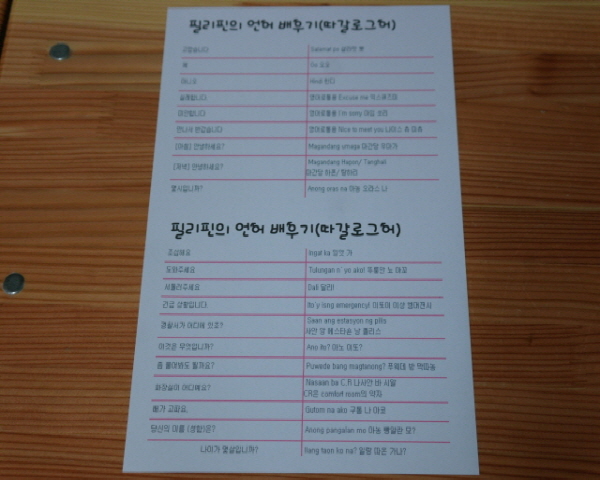 필리핀의 언어 배우기(따갈로그어)
고맙습니다 Salamat po 살라맛 뽀
네 Oo 오오
아니요 Hindi 힌디
실례합니다 영어로통용 Excuse me 익스큐즈미
미안합니다 영어로통용 I'm sorry 아임 쏘리
만나서 반갑습니다 영어로통용 Nice to meet you 나이스 츄 미츄
(아침) 안녕하세요? Magandang umaga 마간당 우마가
(저녁) 안녕하세요? Magandang Hapon/ Tanghali
마간당 하폰/ 탕하리
몇시입니까? Anong oras na 아농 오라스 나
필리핀의 언어 배우기(따갈로그어)
조심해요 Ingat ka 잉앗 카
도와주세요 Tulungan n' yo ako! 두룽안 뇨 아꼬
서둘러주세요 Dali 달리!
긴급 상황입니다 Ito'y isng emergency! 이토이 이상 엠머젼시
경찰서가 어디에 있죠? Saan ang estasyon ng pilis
사안 앙 에스타숀 낭 폴리스
이것은 무엇입니까? Ano ito? 아노 이또?
좀 물어봐도 될까요? Puwede bang magtanong? 푸웨데 방 막따농
화장실이 어디예요? Nasaan ba C.R 나사안 바 시알
CR은 comfort room의 약자
배가 고파요. Gutom na ako 구톰 나 아코
당신의 이름 (성함)은? Anong pangalan mo 아농 빵알란 모?
나이가 몇살입니까? Ilang taon ka na? 일랑 따온 카나?